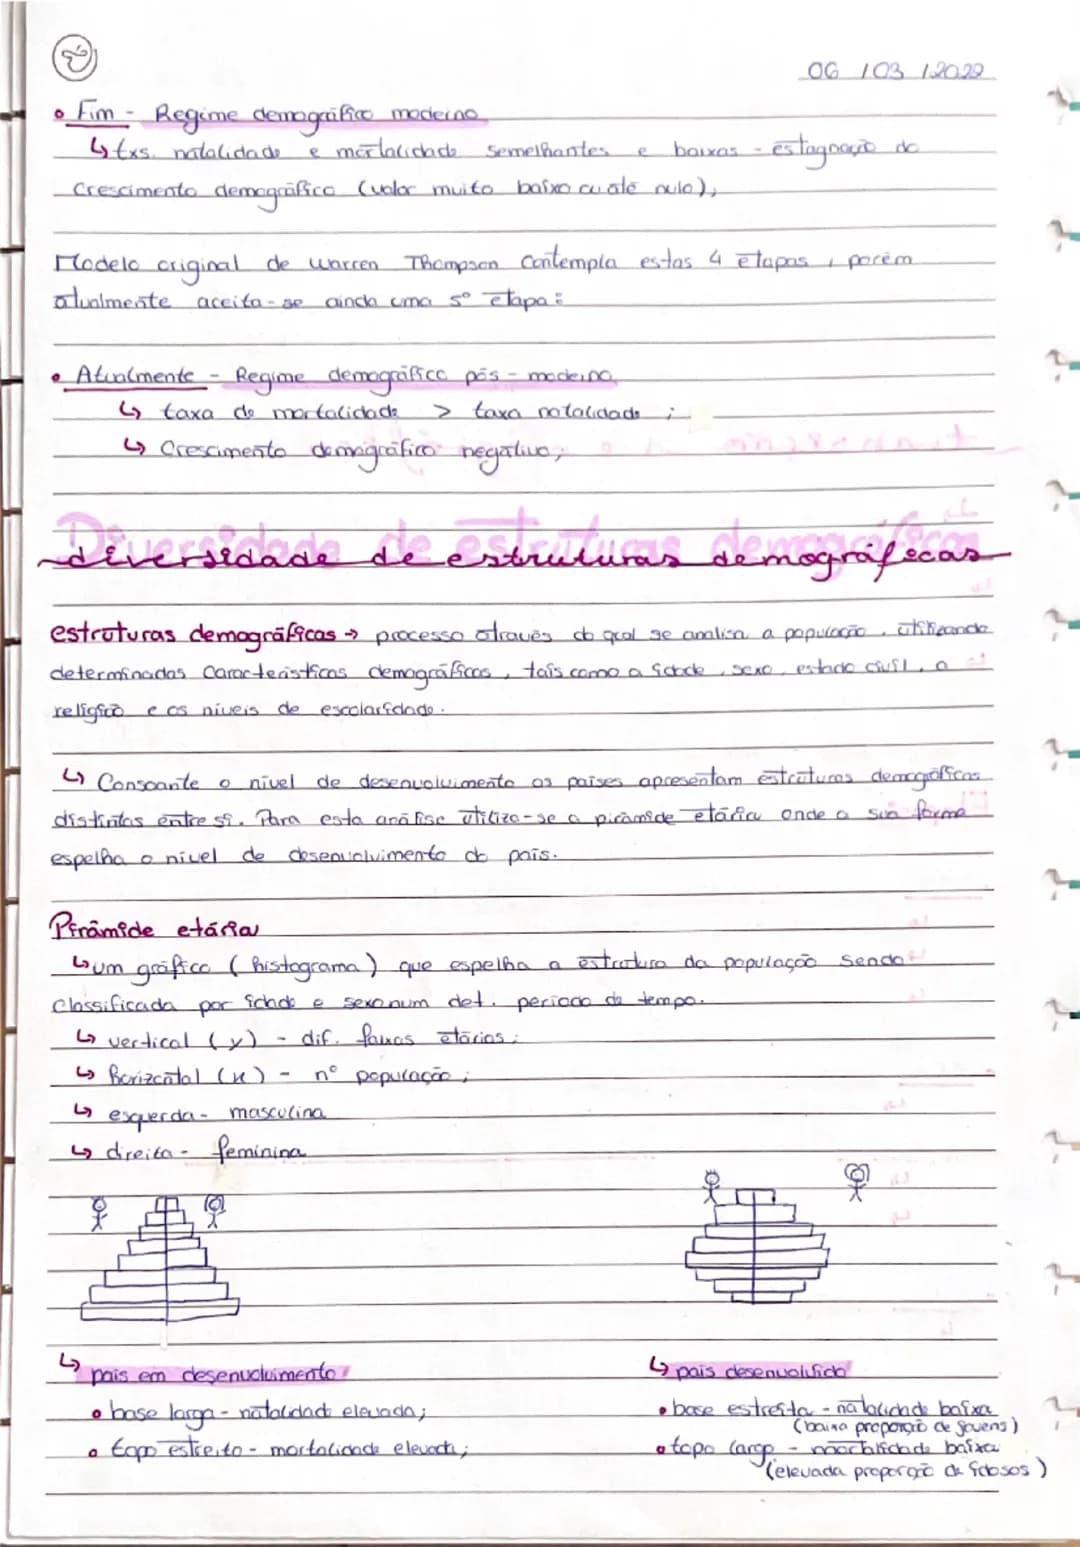 06/03/2022
• Fim - Regime demográfico moderno
↳ txs. natalidade e mortalidade semelhantes e baixas - estagnação do
Crescimento demográfico (valor muito baixo ou até nulo);
Modelo original de Warren Thompson contempla estas 4 etapas, porém
atualmente aceita-se ainda uma 5º etapa:
• Atualmente - Regime demográfico pós-moderno
↳ taxa de mortalidade > taxa natalidade;
↳ Crescimento demográfico negativo;
Diversidade de estruturas demográficas
estruturas demográficas → processo através do qual se analisa a população, utilizando
determinadas características demográficas, tais como a idade, sexo, estado civil, a
religião e os níveis de escolaridade.
↳ Consoante o nível de desenvolvimento os países apresentam estruturas demográficas
distintas entre si. Para esta análise utiliza-se a pirâmide etária onde a sua forma
espelha o nível de desenvolvimento do país.
Pirâmide etária
↳ um gráfico (histograma) que espelha a estrutura da população sendo
classificada por idade e sexo num det. período de tempo.
↳ vertical (y) - dif. faixas etárias;
↳ horizontal (x) - nº população;
↳ esquerda - masculina
↳ direita - feminina
↳ país em desenvolvimento
• base larga - natalidade elevada;
• topo estreito - mortalidade elevada;
↳ país desenvolvido
• base estreita - natalidade baixa
(baixa proporção de jovens)
• topo largo - mortalidade baixa
(elevada proporção de idosos)